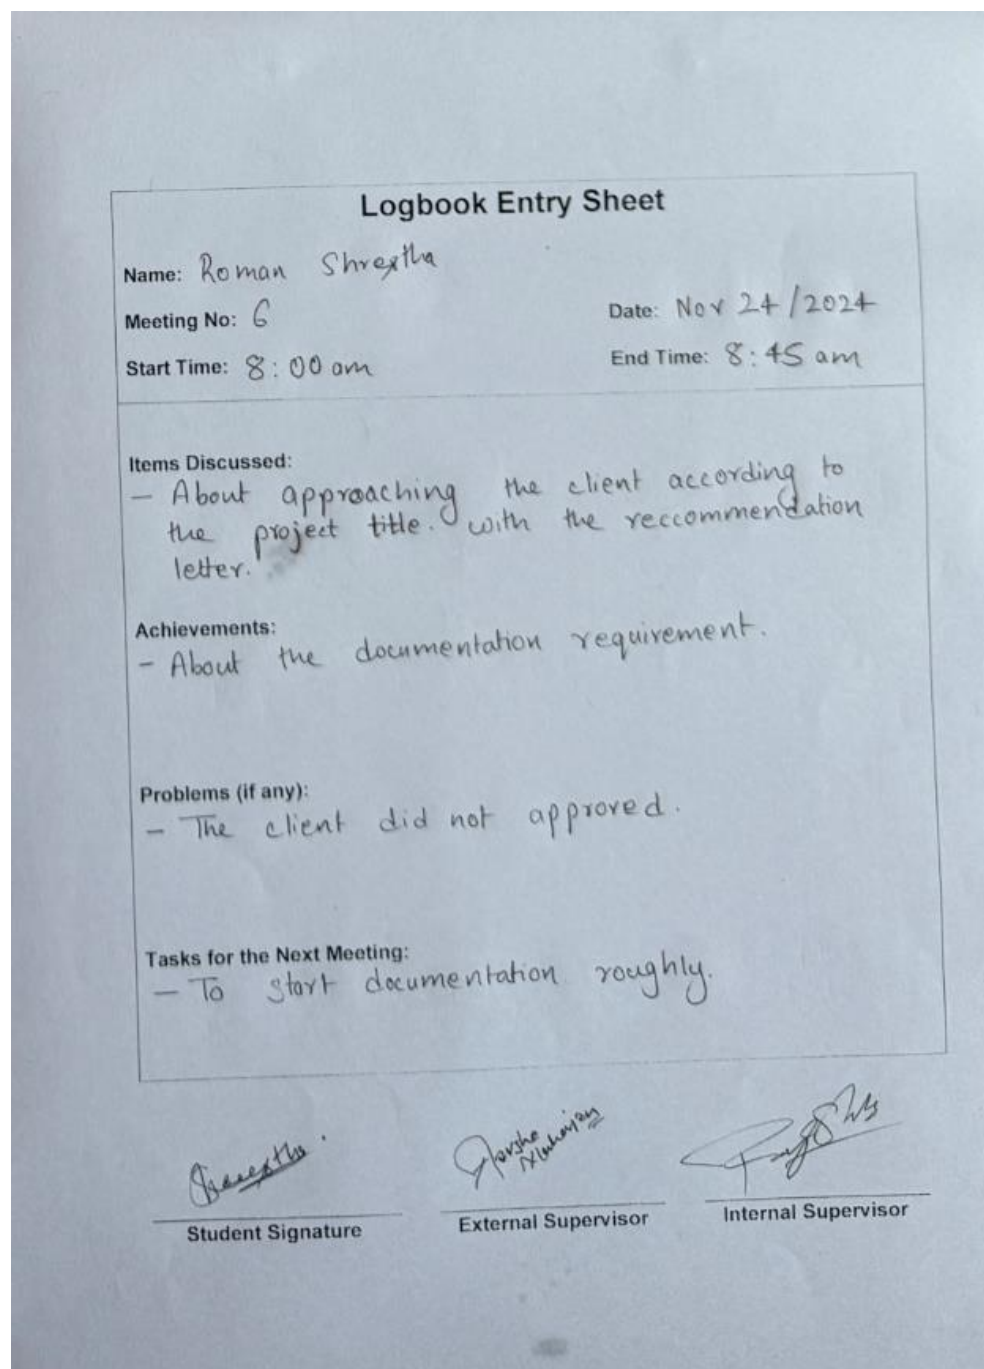 Logbook Entry Sheet
Name: Roman Shrestha
Meeting No: 6
Date: Nov 24/2024
Start Time: 8:00 am
End Time: 8:45 am
Items Discussed:
- About approaching the client according to
the project title. with the reccommendation
letter.
Achievements:
- About the documentation requirement.
Problems (if any):
- The client did not approved.
Tasks for the Next Meeting:
- To start documentation roughly.
Shrestha
Student Signature
External Supervisor
Internal Supervisor